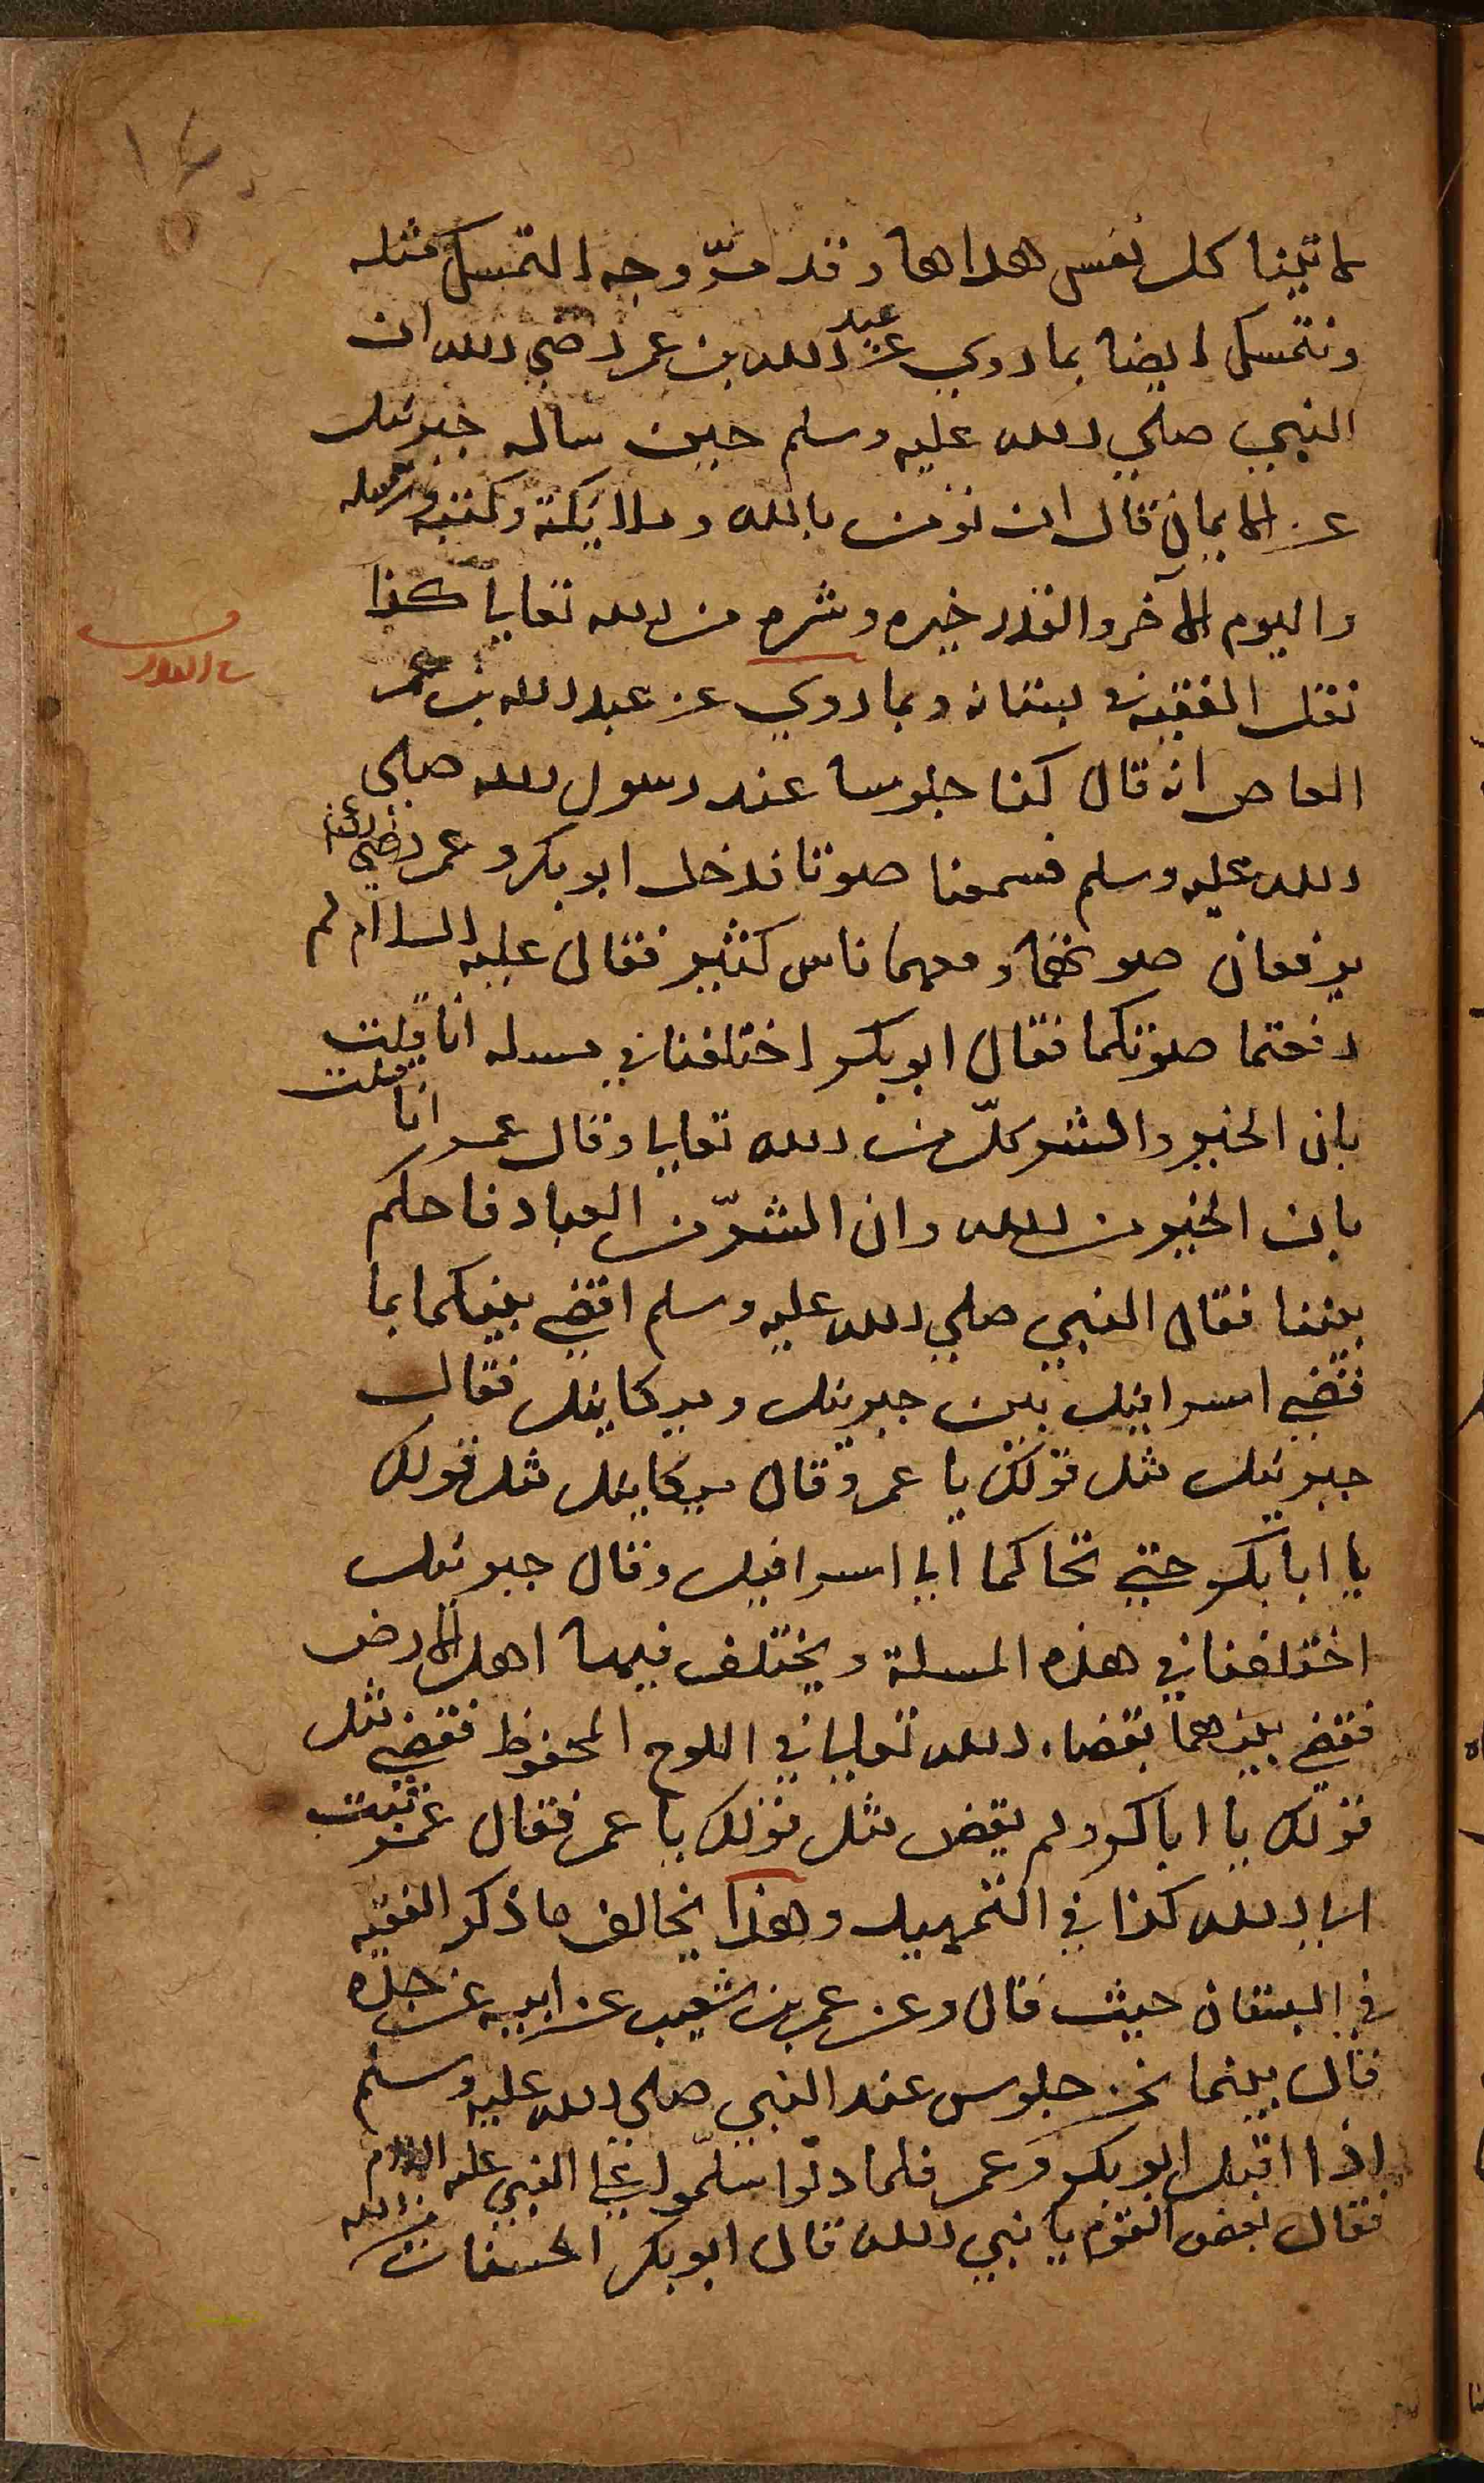 لاتينا كل نفس هداها وقد مرّ وجه التمسك مثله
ونتمسك ايضا بما روي عن عبد الله بن عمر رضي الله ان
النبي صلي الله عليه وسلم حين ساله جبرئيل
عن الايمان قال ان تؤمن بالله وملايكة وكتبه ورسله
واليوم الآخر والقدر خيره وشره من الله تعالي كذا
نقل الفقيه في بستانه وبما روي عن عبد الله بن عمر
العاص انه قال كنا جلوسا عند رسول الله صلي
الله عليه وسلم فسمعنا صوتا فدخل ابو بكر وعمر رضي الله عنه
يرفعان صوتهما ومعهما ناس كثير فقال عليه السلام لم
رفعتما صوتكما فقال ابو بكر اختلفنا في مسئله انا قلت
بان الخير والشر كلّ من الله تعالي وقال عمر انا قلت
بان الخير من الله وان الشرّ من العباد فاحكم
بيننا فقال النبي صلي الله عليه وسلم اقضي بينكما بما
فقضي اسرافيل بين جبرئيل وميكاييل فقال
جبرئيل مثل قولك يا عمر وقال ميكاييل مثل قولك
يا ابا بكر حتي تحاكما الي اسرافيل وقال جبرئيل
اختلفنا في هذه المسلة ويختلف فيها اهل الارض
فقضي بينهما بقضاء الله تعالي في اللوح المحفوظ فقضي مثل
قولك يا ابا بكر ولم يقض مثل قولك يا عمر فقال عمر تبت
الي الله كذا في التمهيد وهذا يخالف ما ذكر الفقيه
في البستان حيث قال وعن عمر بن شعيب عن ابيه عن جده
قال بينما نحن جلوس عند النبي صلي الله عليه وسلم
اذا اقبل ابو بكر وعمر فلما دنوا سلّموا علي النبي عليه السلام
فقال بعض القوم يا نبي الله قال ابو بكر الحسنات من الله